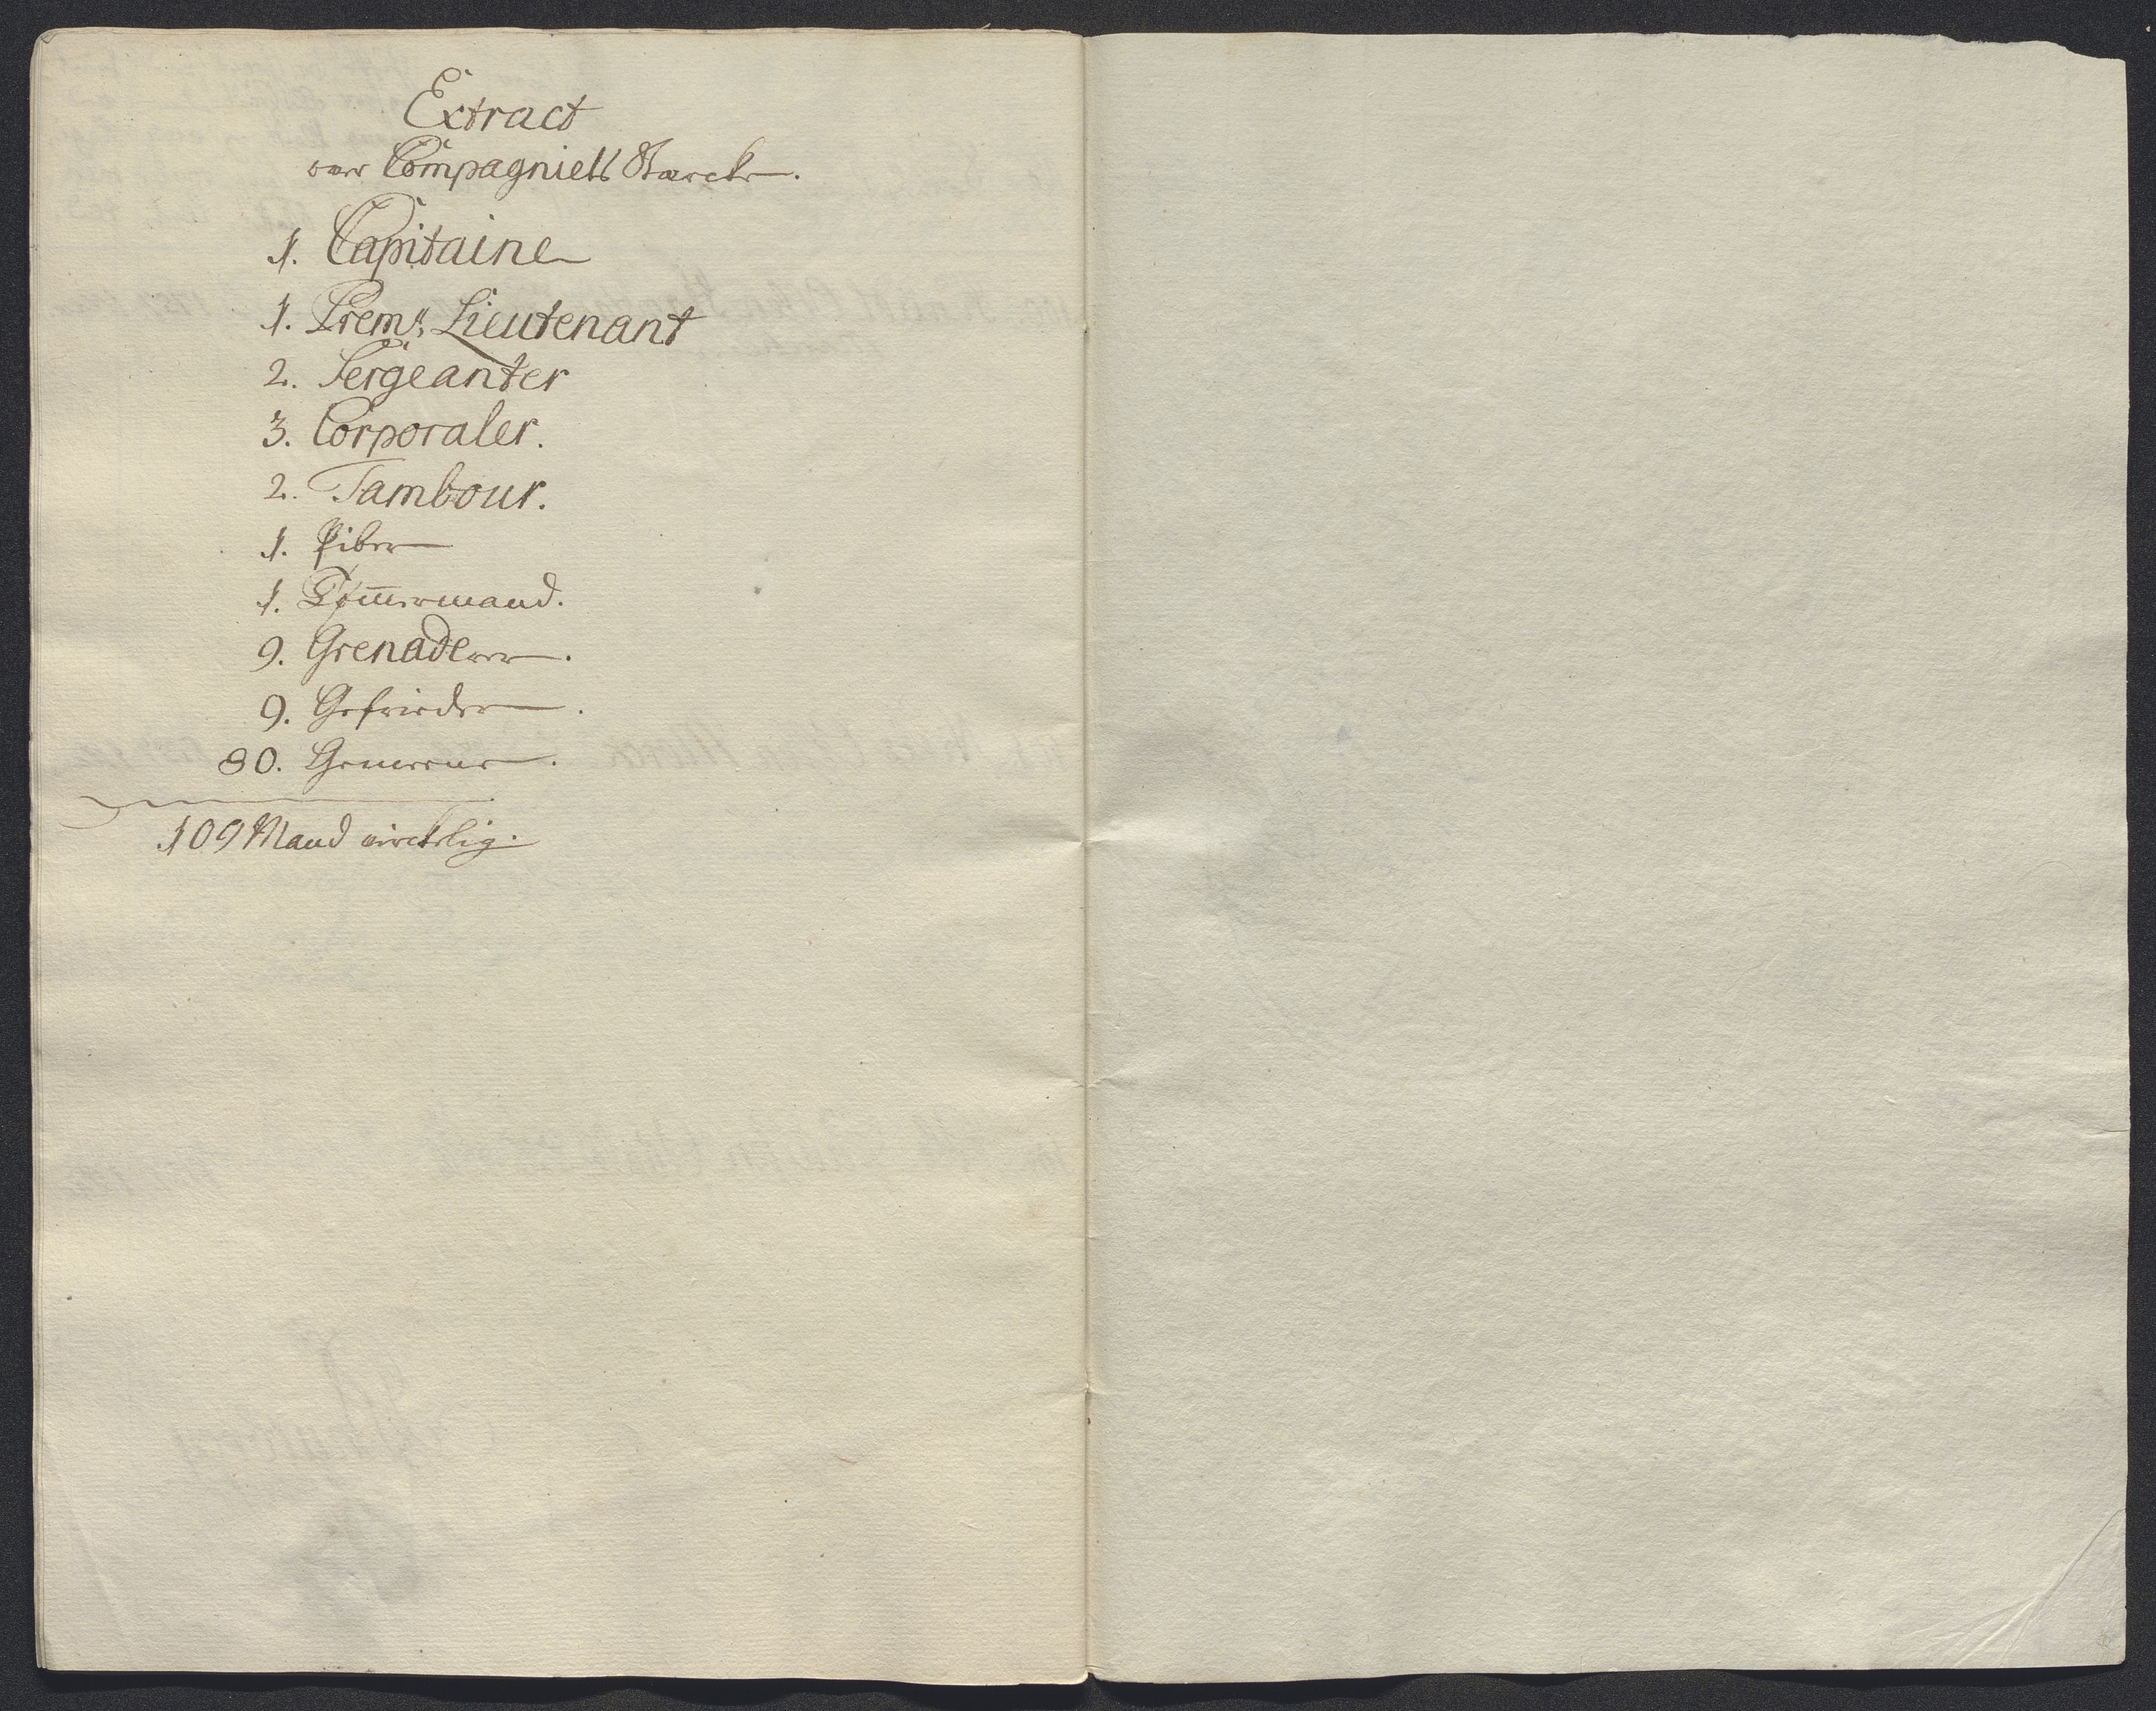 Extract
over Compagniets Starcke.
1. Capitaine
1. Prem: Lieutenant
2. Sergeanter
3. Corporaler.
2. Tambour.
1. Piber
1. Tømmermand.
9. Grenaderer.
9. Gefrieder.
80. Gemeene.
109 Mand virckelig.